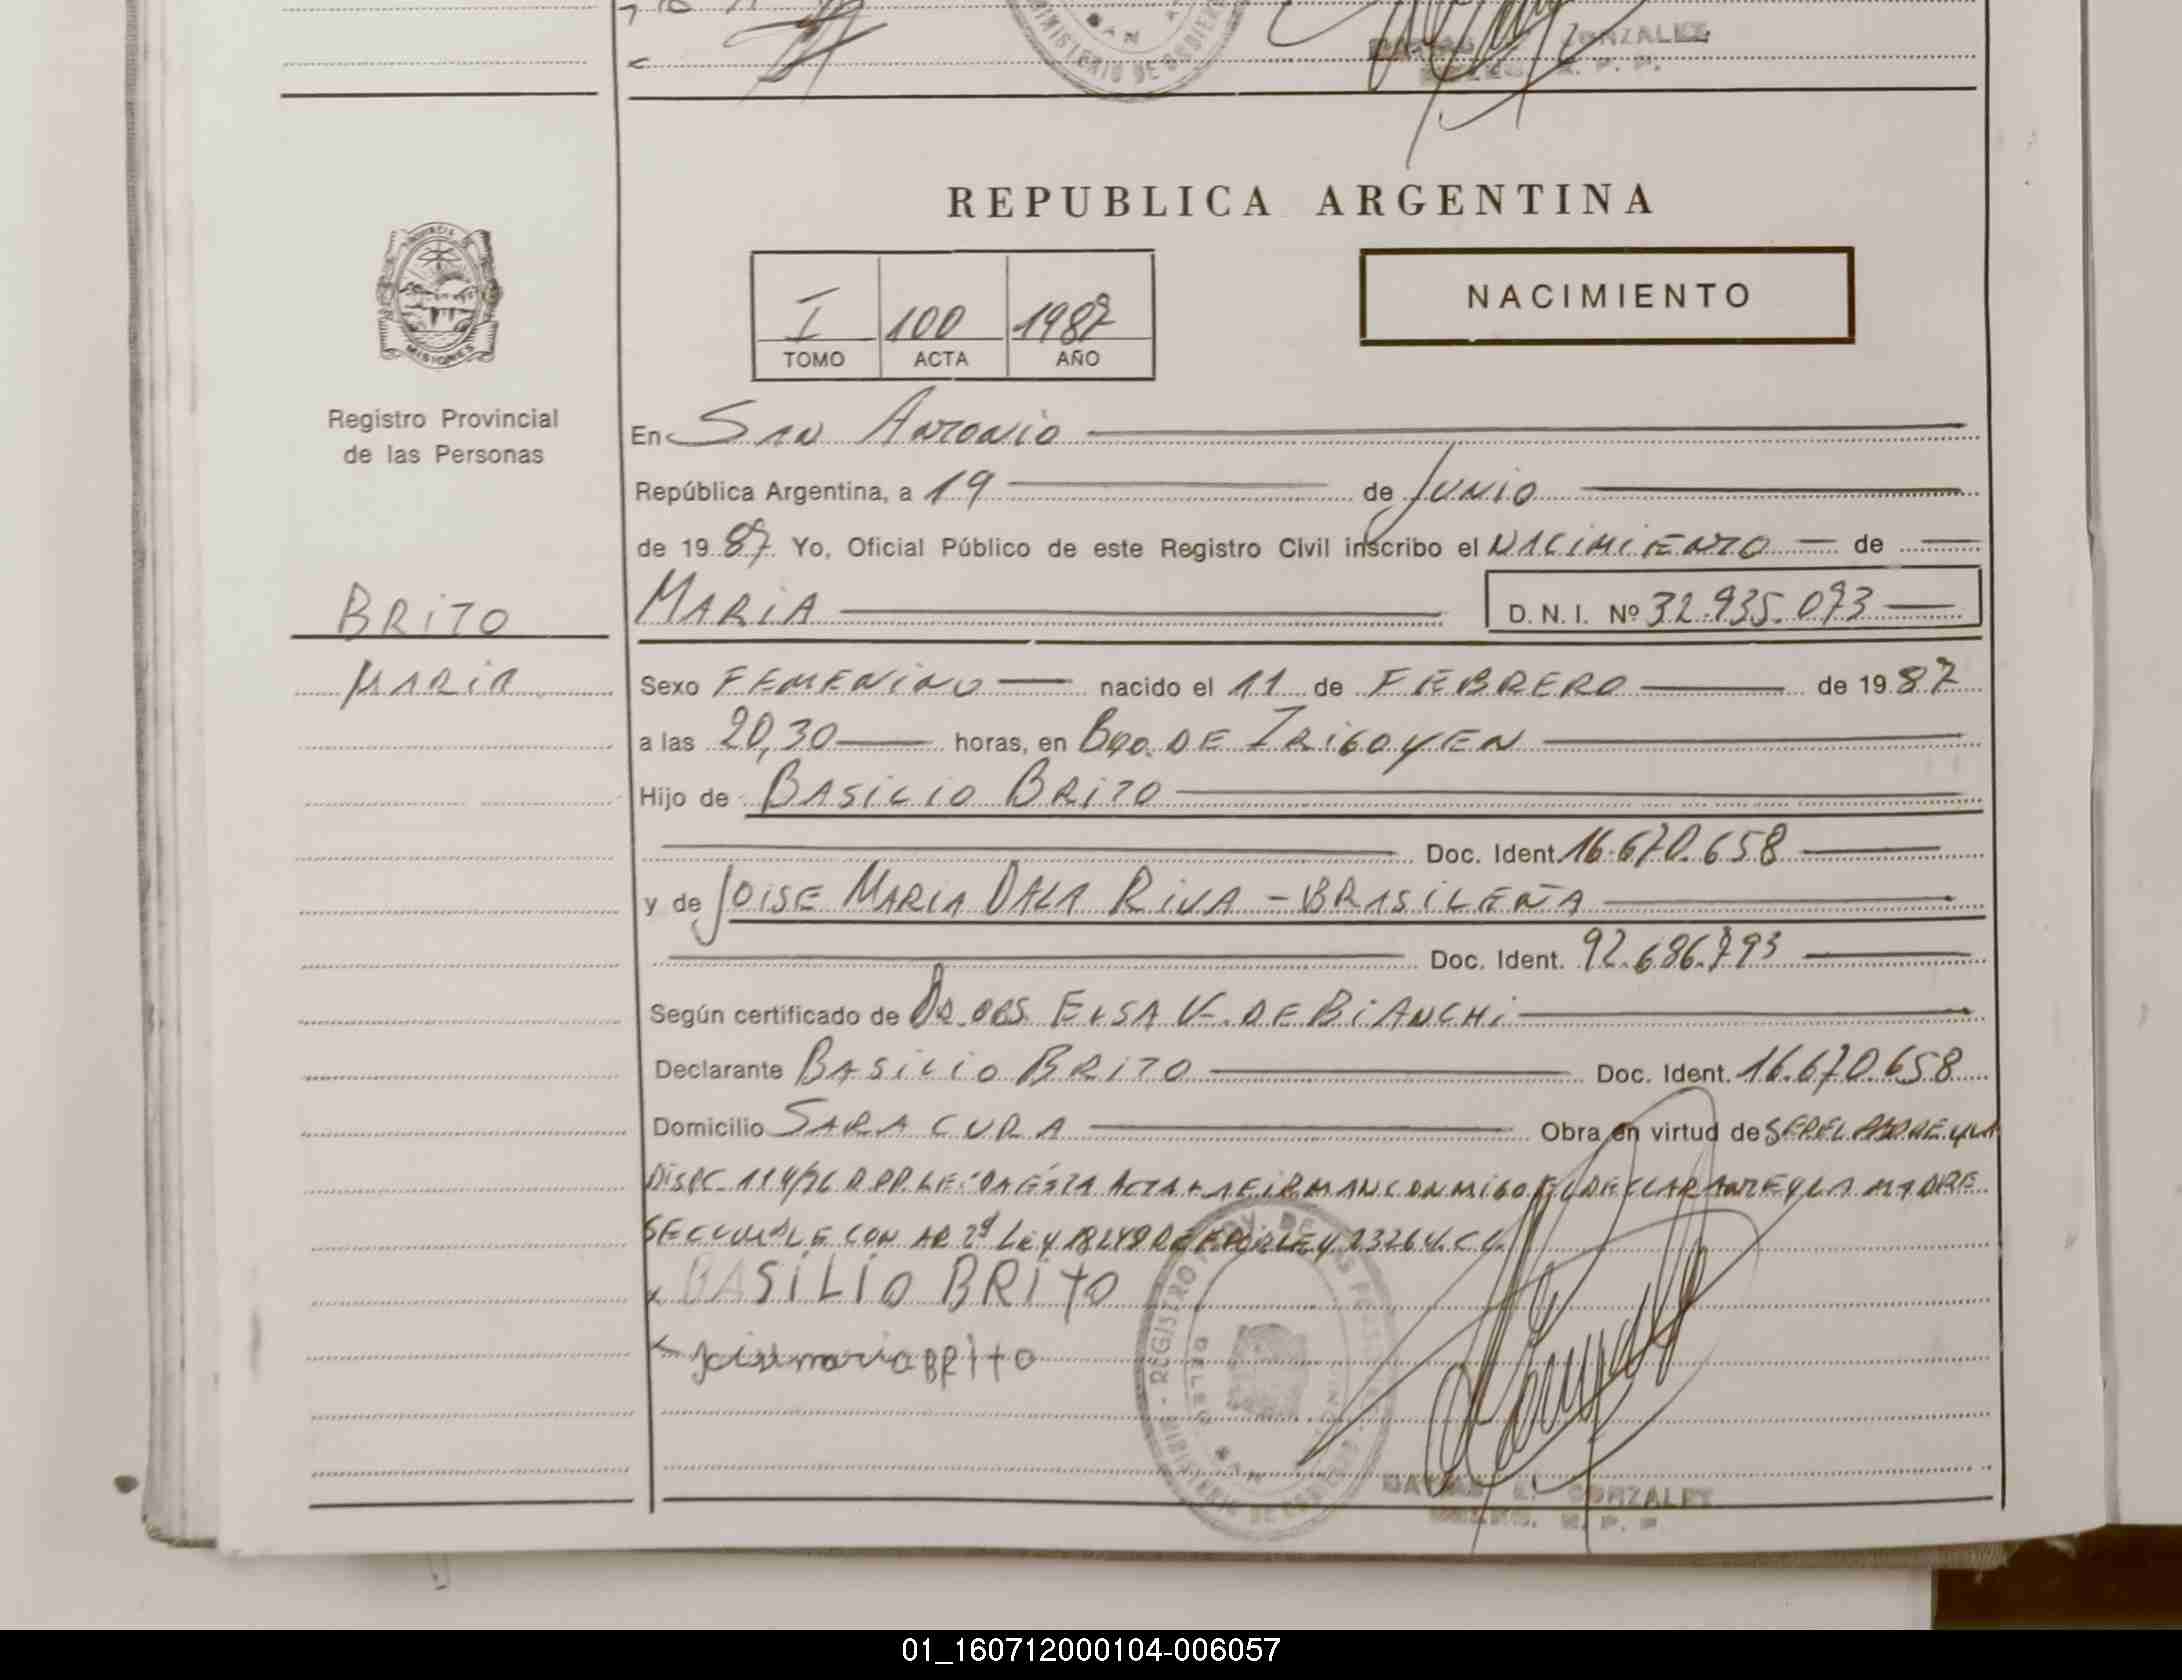 MINISTERIO DE GOBIERNO
SAN
GONZALEZ
R. P. P.
REPUBLICA ARGENTINA
PROVINCIA DE
MISIONES
NACIMIENTO
I 100 1987
TOMO ACTA AÑO
Registro Provincial
de las Personas
En San Antonio
República Argentina, a 19 de Junio
de 1987. Yo, Oficial Público de este Registro Civil inscribo el NACIMIENTO de
BRITO
MARIA D. N. I. Nº 32.935.073
MARIA
Sexo FEMENINO nacido el 11 de FEBRERO de 1987
a las 20,30 horas, en Bdo. DE IRIGOYEN
Hijo de BASILIO BRITO
Doc. Ident. 16.670.658
y de JOISE MARIA DALA RIVA - BRASILEÑA
Doc. Ident. 92.686.793
Según certificado de ELSA V. DE BIANCHI
Declarante BASILIO BRITO Doc. Ident. 16.670.658
Domicilio SARACURA Obra en virtud de SER EL PADRE Y LA
DISPC. 114/76 LEIDA ÉSTA ACTA FIRMAN CONMIGO EL DECLARANTE Y LA MADRE
SE CUMPLE CON LEY 23264
x BASILIO BRITO
BRITO
REGISTRO PROV. DE LAS PERSONAS
MINISTERIO DE GOBIERNO
SAN
L. GONZALEZ
R. P. P.
01_160712000104-006057